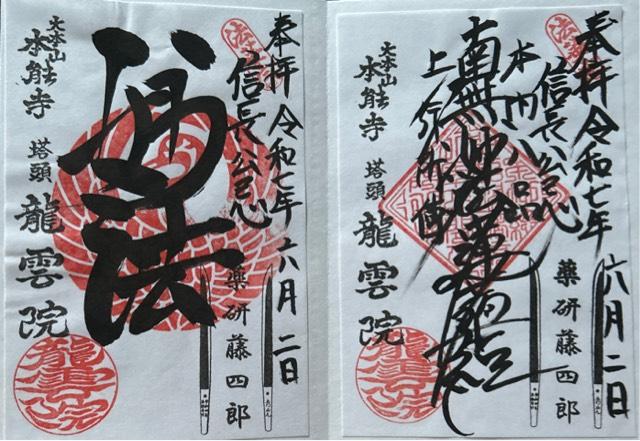 奉拝 令和七年 六月二日
信長公忌
薬研藤四郎
妙法
大本山
本能寺 塔頭 龍雲院
龍雲院
奉拝 令和七年 六月二日
信長公忌
薬研藤四郎
本門八品
南無妙法蓮華経
上行所傳
大本山
本能寺 塔頭 龍雲院
龍雲院